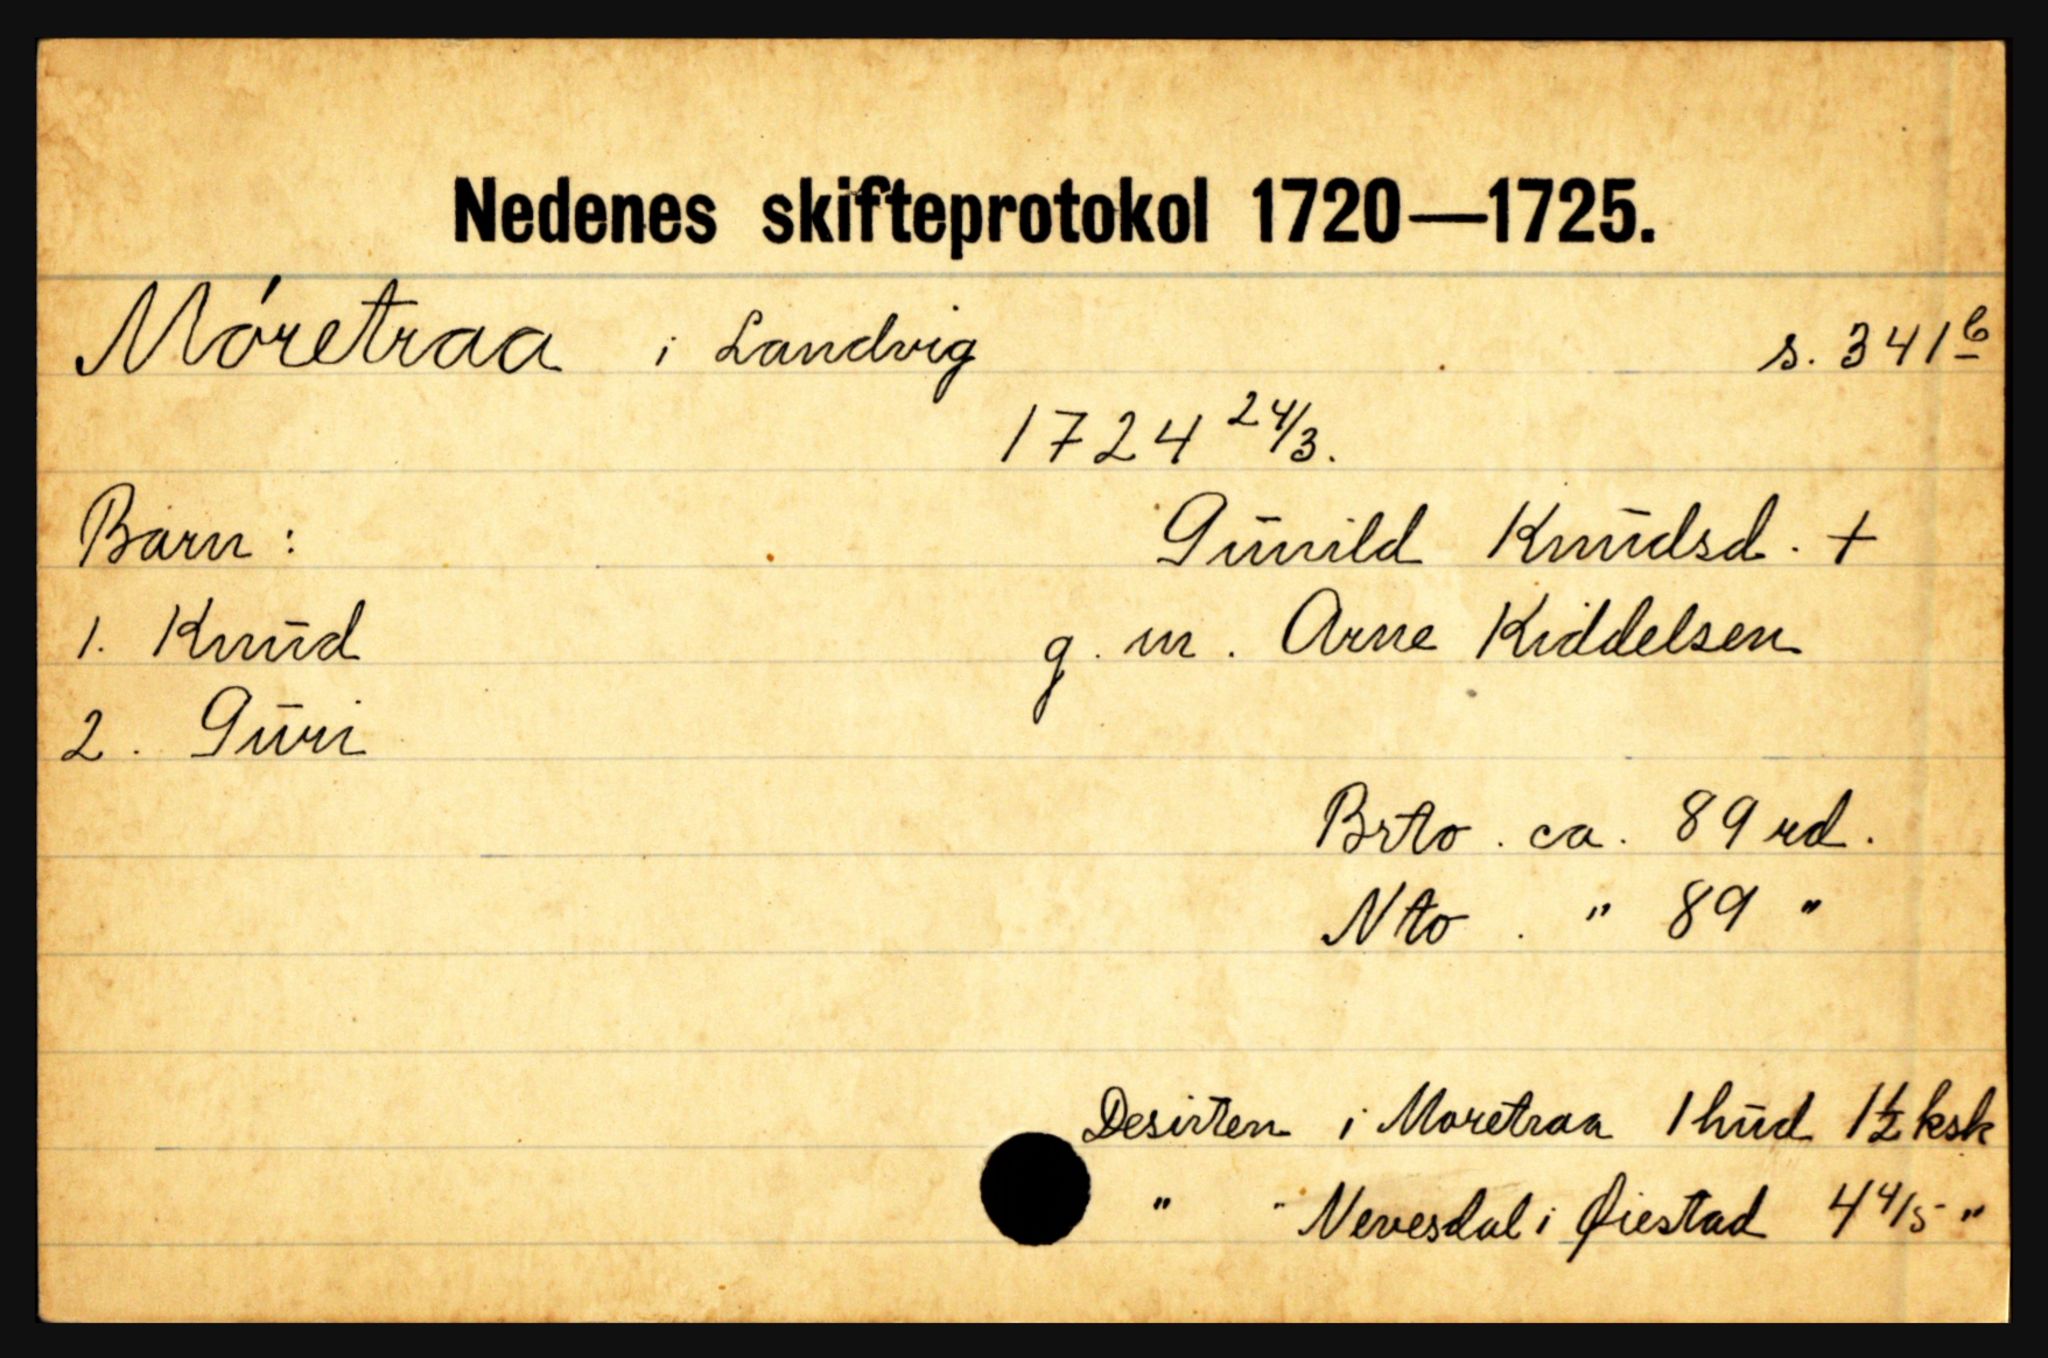 Nedenes skifteprotokol 1720—1725.
Móretraa i Landvig s. 341b
1724 24/3.
Barn: Gūnild Knūdsd. +
1. Knūd g. m. Arne Kiddelsen
2. Gūri
Brto. ca. 89 rd.
Nto. " 89 "
Desuten i Moretraa 1 hūd 1½ ksk
" " Nevesdal i Øiestad 4 4/5 "